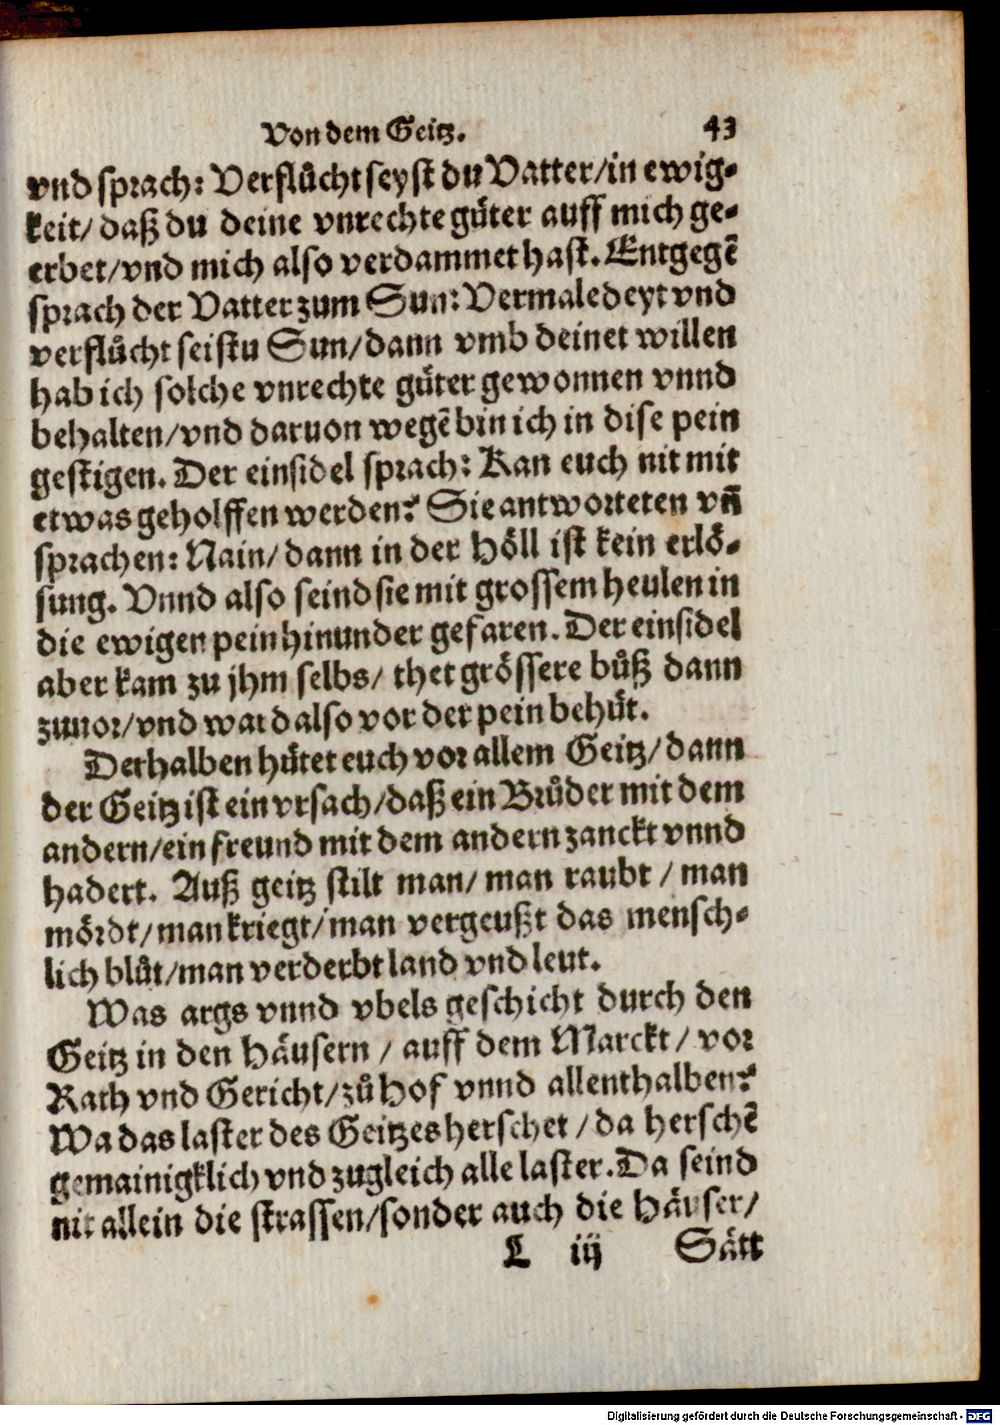 Von dem Geitz. 43
vnd sprach: Verflůcht seyst du Vatter/in ewig-
keit/ daß du deine vnrechte gůter auff mich ge-
erbet/vnd mich also verdammet hast. Entgegẽ
sprach der Vatter zum Sun: Vermaledeyt vnd
verflůcht seistu Sun/dann vmb deinet willen
hab ich solche vnrechte gůter gewonnen vnnd
behalten/vnd daruon wegẽ bin ich in dise pein
gestigen. Der einsidel sprach: Kan euch nit mit
etwas geholffen werden? Sie antworteten vñ
sprachen: Nain/ dann in der Höll ist kein erlö-
sung. Vnnd also seind sie mit grossem heulen in
die ewigen pein hinunder gefaren. Der einsidel
aber kam zu jhm selbs/ thet grössere bůß dann
zuuor/vnd ward also vor der pein behůt.
Derhalben hůtet euch vor allem Geitz/dann
der Geitz ist ein vrsach/daß ein Brůder mit dem
andern/ein freund mit dem andern zanckt vnnd
hadert. Auß geitz stilt man/ man raubt / man
mördt/man kriegt/man vergeußt das mensch-
lich blůt/man verderbt land vnd leut.
Was args vnnd vbels geschicht durch den
Geitz in den Häusern / auff dem Marckt / vor
Rath vnd Gericht/zů Hof vnnd allenthalben?
Wa das laster des Geitzes herschet /da herschẽ
gemainigklich vnd zugleich alle laster. Da seind
nit allein die strassen/sonder auch die Häuser/
L iij Sätt
Digitalisierung gefördert durch die Deutsche Forschungsgemeinschaft - DFG